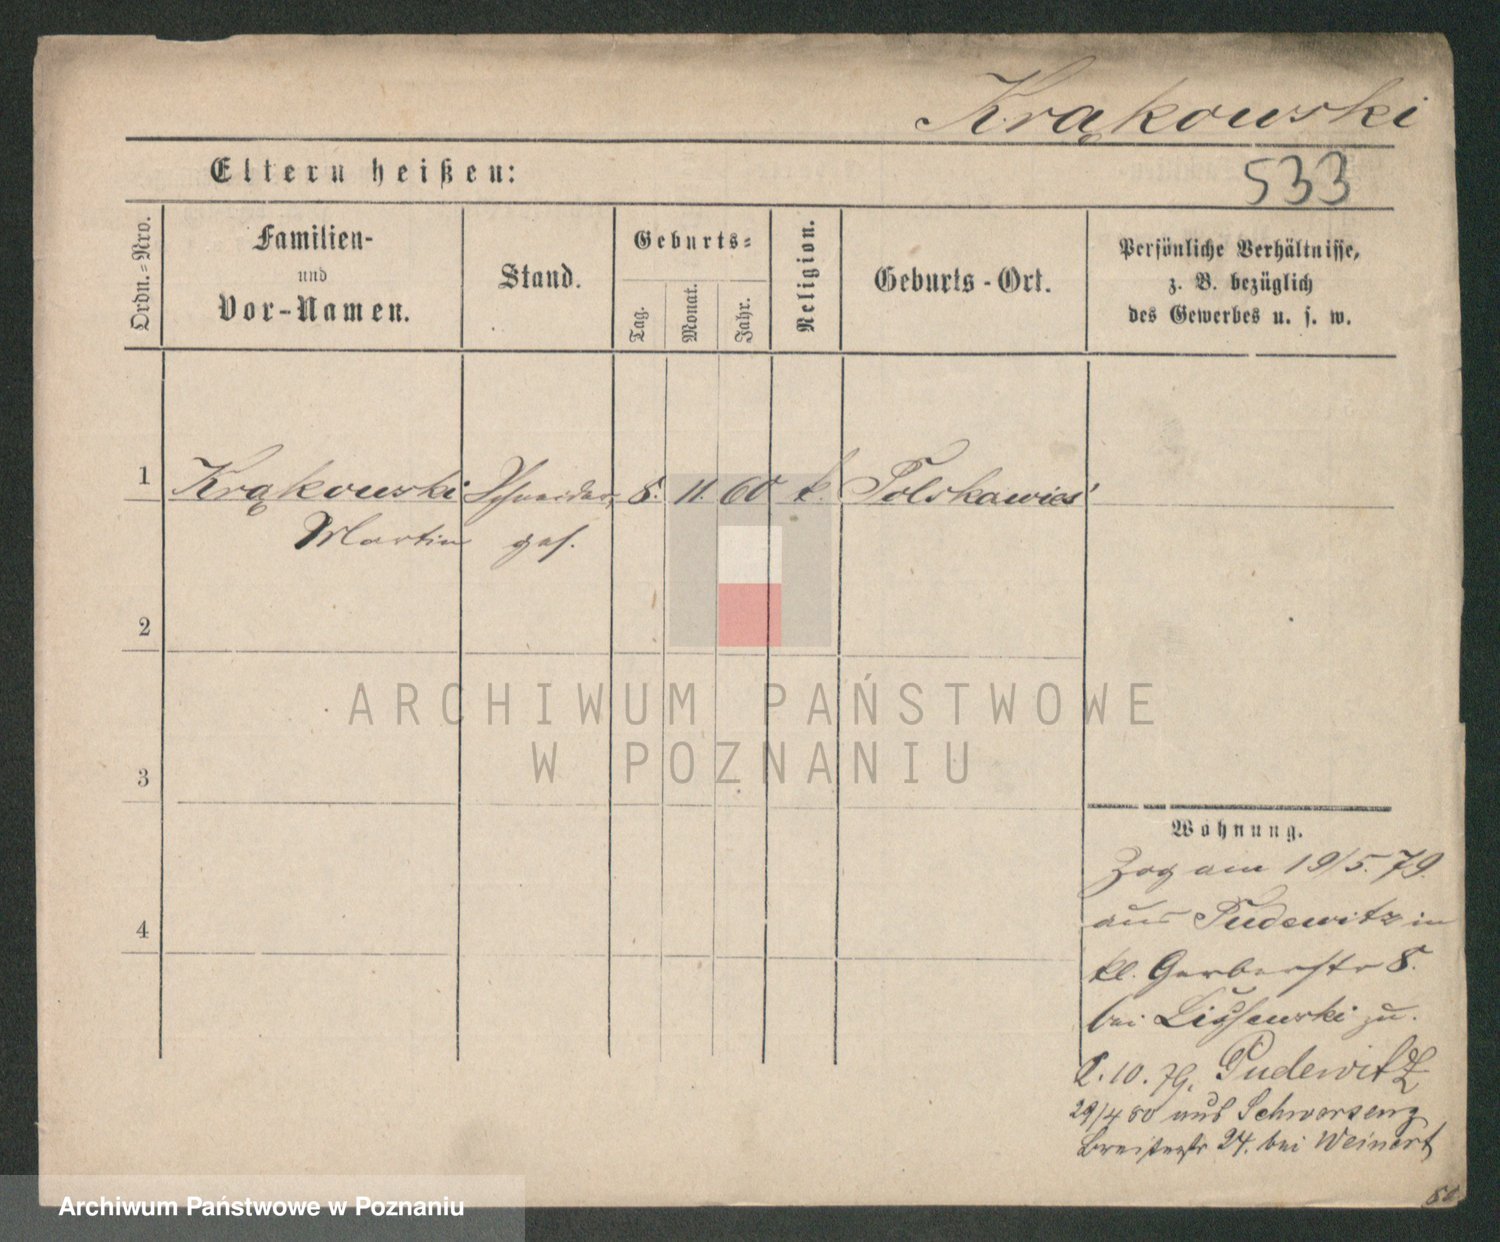 Krąkowski
533
Eltern heißen:
Ordn.=Nro.
Familien-
und
Vor-Namen.
Stand.
Geburts=
Tag.
Monat.
Jahr.
Religion.
Geburts-Ort.
Persönliche Verhältnisse,
z. B. bezüglich
des Gewerbes u. s. w.
1
Krąkowski Schneider 8. 11. 60 k. Polskawieś
Martin ges.
2
3
4
ARCHIWUM PAŃSTWOWE
W POZNANIU
Wohnung.
Zog am 19/5. 79.
aus Pudewitz in
kl. Gerberstr 8.
bei Lissewski zu.
10. 79. Pudewitz
29/4 80 aus Schwersenz
Breitestr 24. bei Weinert
Archiwum Państwowe w Poznaniu